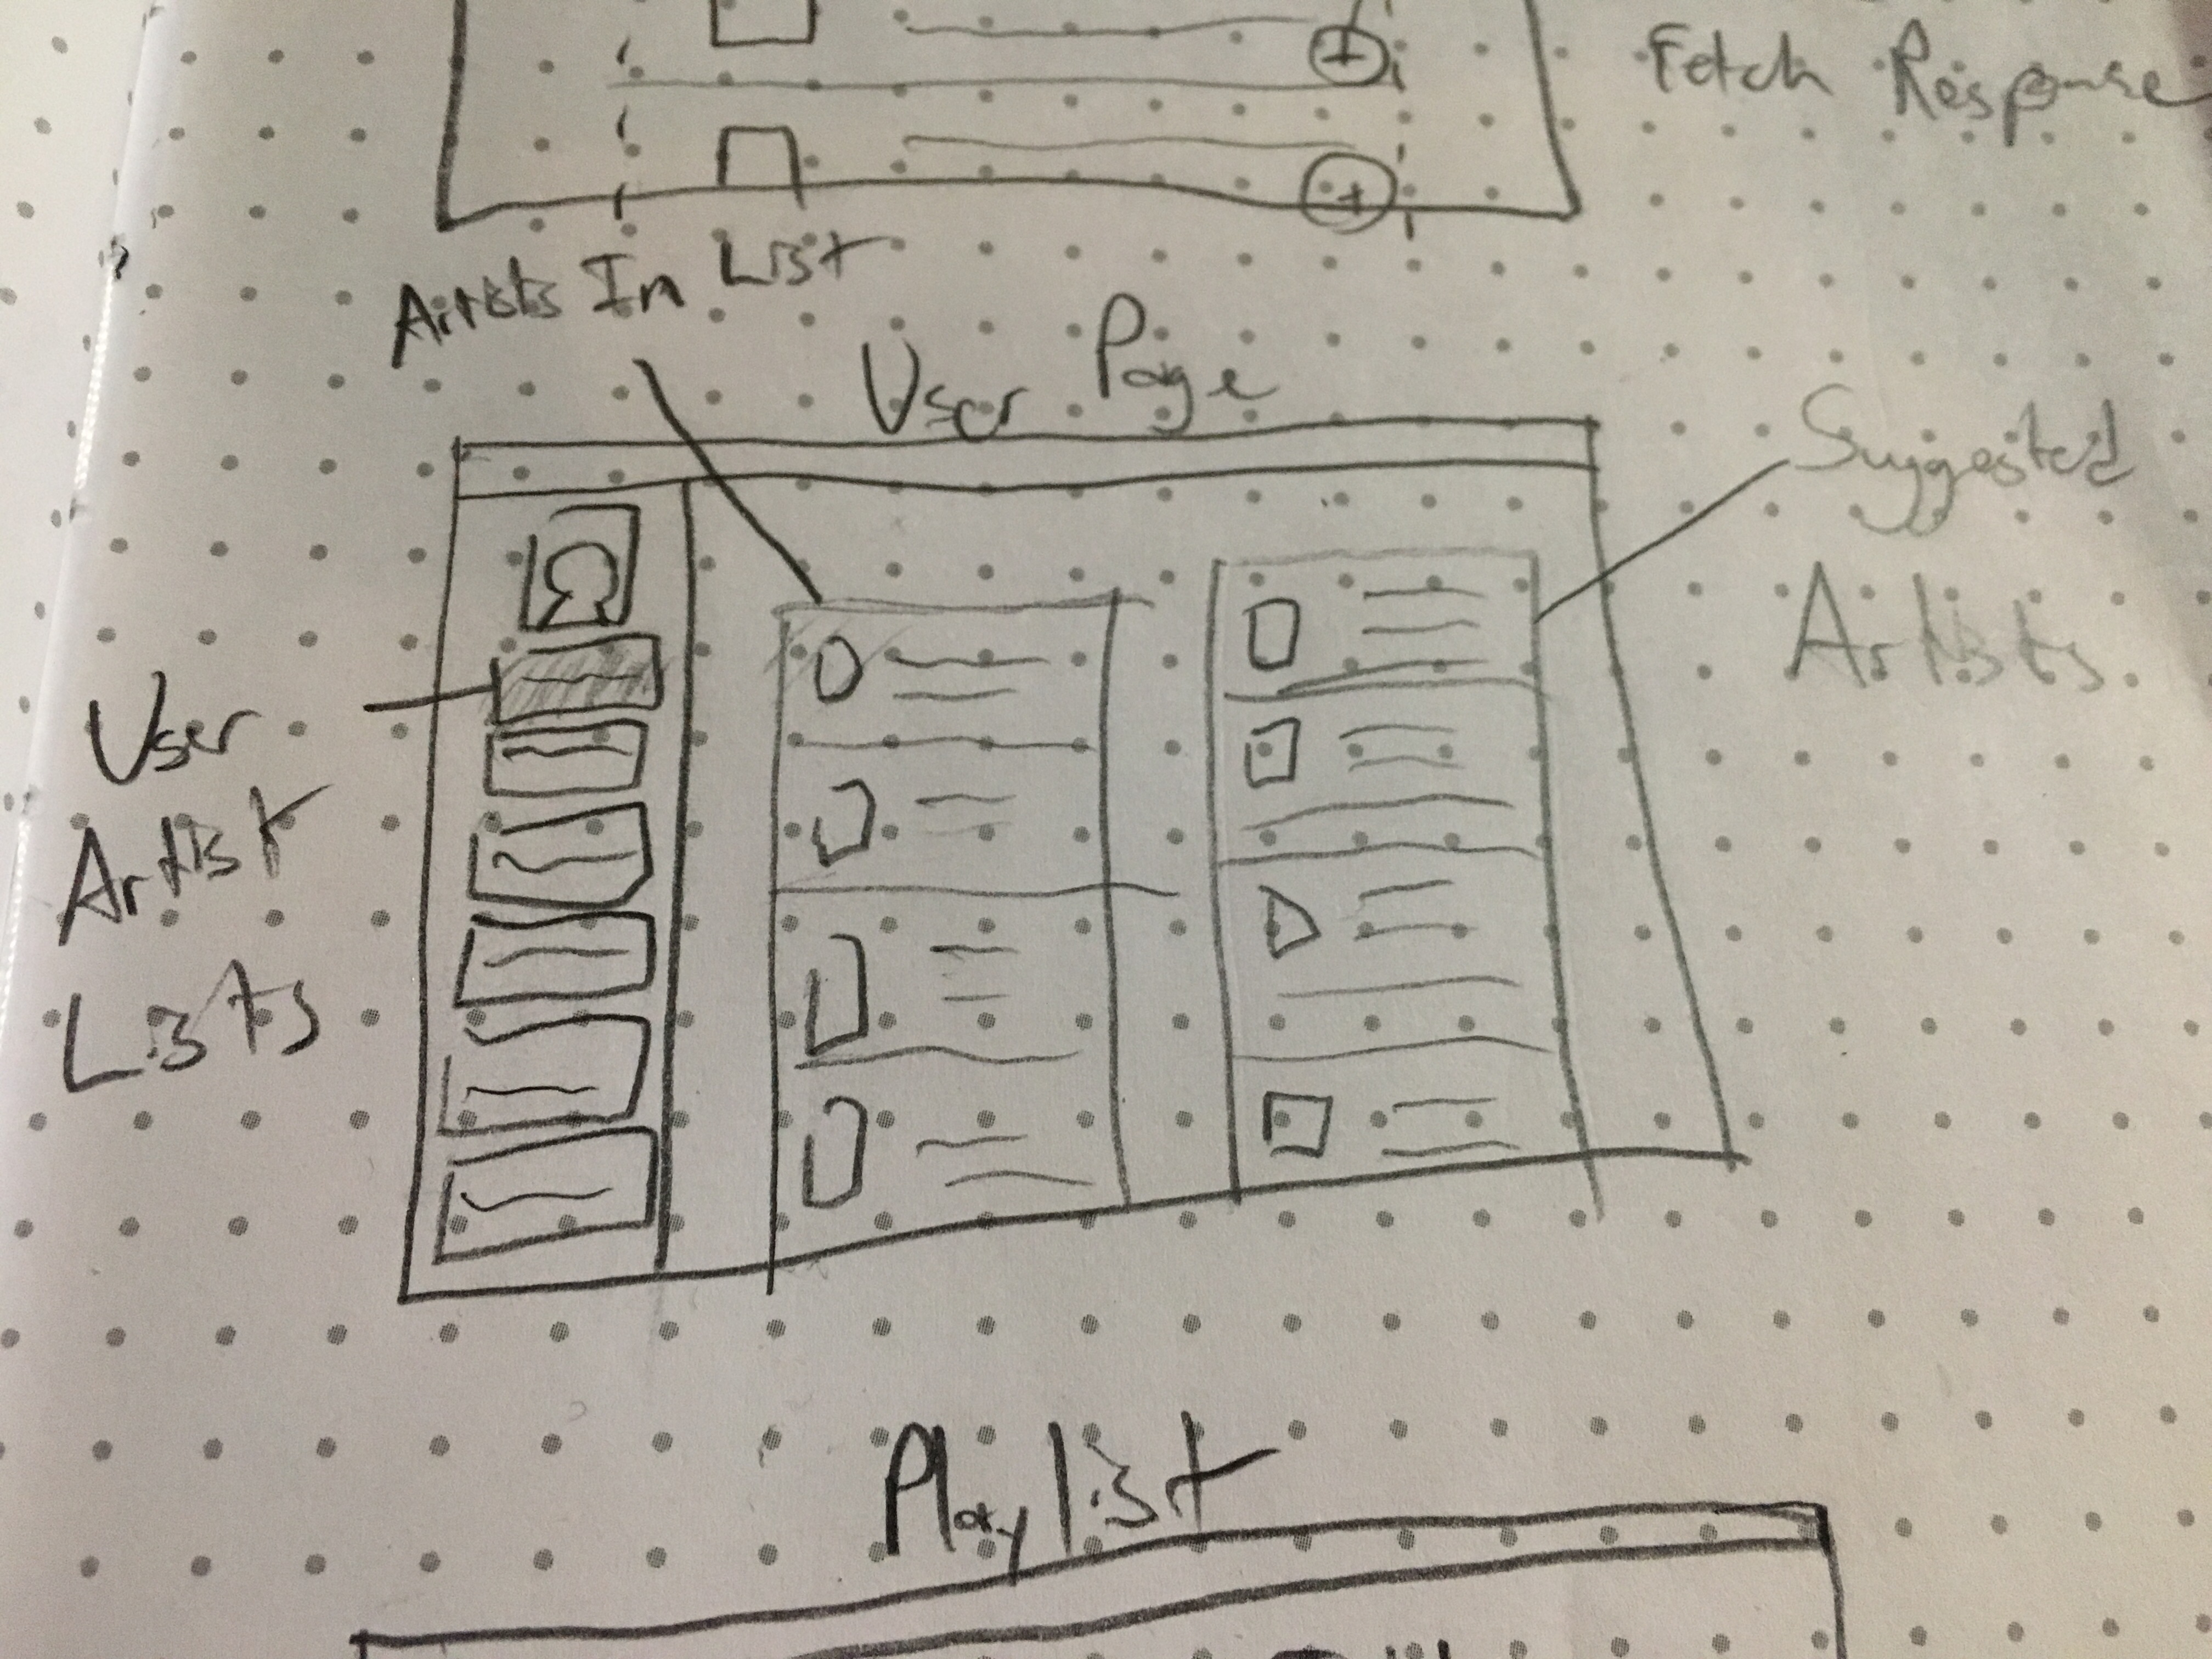 Fetch Response
Artists In List
User Page
Suggested
Artists
User
Artist
Lists
Playlist